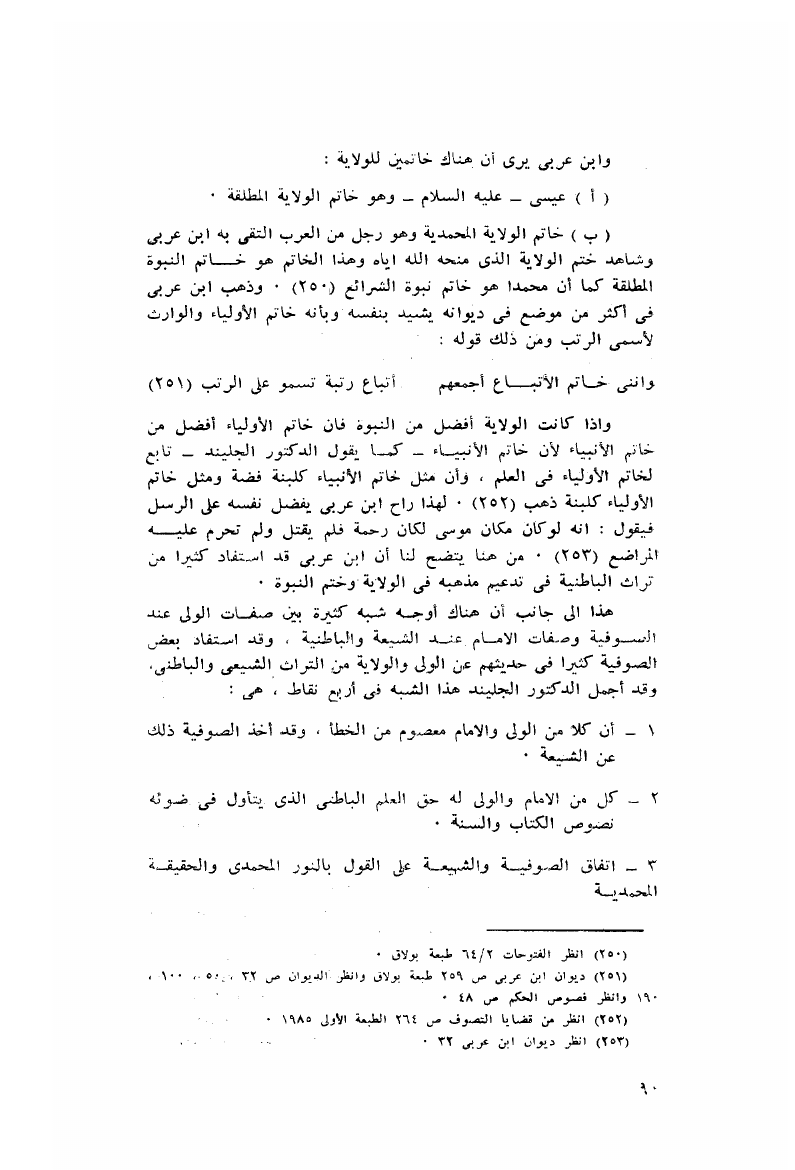 وابن عربى يرى أن هناك خاتمين للولاية :
( أ ) عيسى ــ عليه السلام ــ وهو خاتم الولاية المطلقة ٠
( ب ) خاتم الولاية المحمدية وهو رجل من العرب التقى به ابن عربى
وشاهد ختم الولاية الذى منحه الله اياه وهذا الخاتم هو خـــاتم النبوة
المطلقة كما أن محمدا هو خاتم نبوة الشرائع (٢٥٠) ٠ وذهب ابن عربى
فى أكثر من موضع فى ديوانه يشيد بنفسه وبأنه خاتم الأولياء والوارث
لأسمى الرتب ومن ذلك قوله :
وانى خــاتم الأتبـــاع أجمعهم أتباع رتبة تسمو على الرتب (٢٥١)
واذا كانت الولاية أفضل من النبوة فان خاتم الأولياء أفضل من
خاتم الأنبياء لأن خاتم الأنبيــاء ــ كمــا يقول الدكتور الجليند ــ تابع
لخاتم الأولياء فى العلم ، وأن مثل خاتم الأنبياء كلبنة فضة ومثل خاتم
الأولياء كلبنة ذهب (٢٥٢) ٠ لهذا راح ابن عربى يفضل نفسه على الرسل
فيقول : انه لو كان مكان موسى لكان رحمة فلم يقتل ولم تحرم عليـــه
المراضع (٢٥٣) ٠ من هنا يتضح لنا أن ابن عربى قد استفاد كثيرا من
تراث الباطنية فى تدعيم مذهبه فى الولاية وختم النبوة ٠
هذا الى جانب أن هناك أوجــه شبه كثيرة بين صفــات الولى عند
الصــوفية وصفات الامــام عنــد الشيعة والباطنية ، وقد استفاد بعض
الصوفية كثيرا فى حديثهم عن الولى والولاية من التراث الشيعى والباطنى،
وقد أجمل الدكتور الجليند هذا الشبه فى أربع نقاط ، هى :
١ ــ أن كلا من الولى والامام معصوم من الخطأ ، وقد أخذ الصوفية ذلك
عن الشيعة ٠
٢ ــ كل من الامام والولى له حق العلم الباطنى الذى يتأول فى ضوئه
نصوص الكتاب والسنة ٠
٣ ــ اتفاق الصوفيــة والشيعــة على القول بالنور المحمدى والحقيقــة
المحمديــة
(٢٥٠) انظر الفتوحات ٦٤/٢ طبعة بولاق ٠
(٢٥١) ديوان ابن عربى ص ٢٥٩ طبعة بولاق وانظر الديوان ص ٣٢ ، ٥٠ ، ١٠٠ ،
١٩٠ وانظر فصوص الحكم ص ٤٨ ٠
(٢٥٢) انظر من قضايا التصوف ص ٢٦٤ الطبعة الأولى ١٩٨٥ ٠
(٢٥٣) انظر ديوان ابن عربى ٣٢ ٠
٩٠